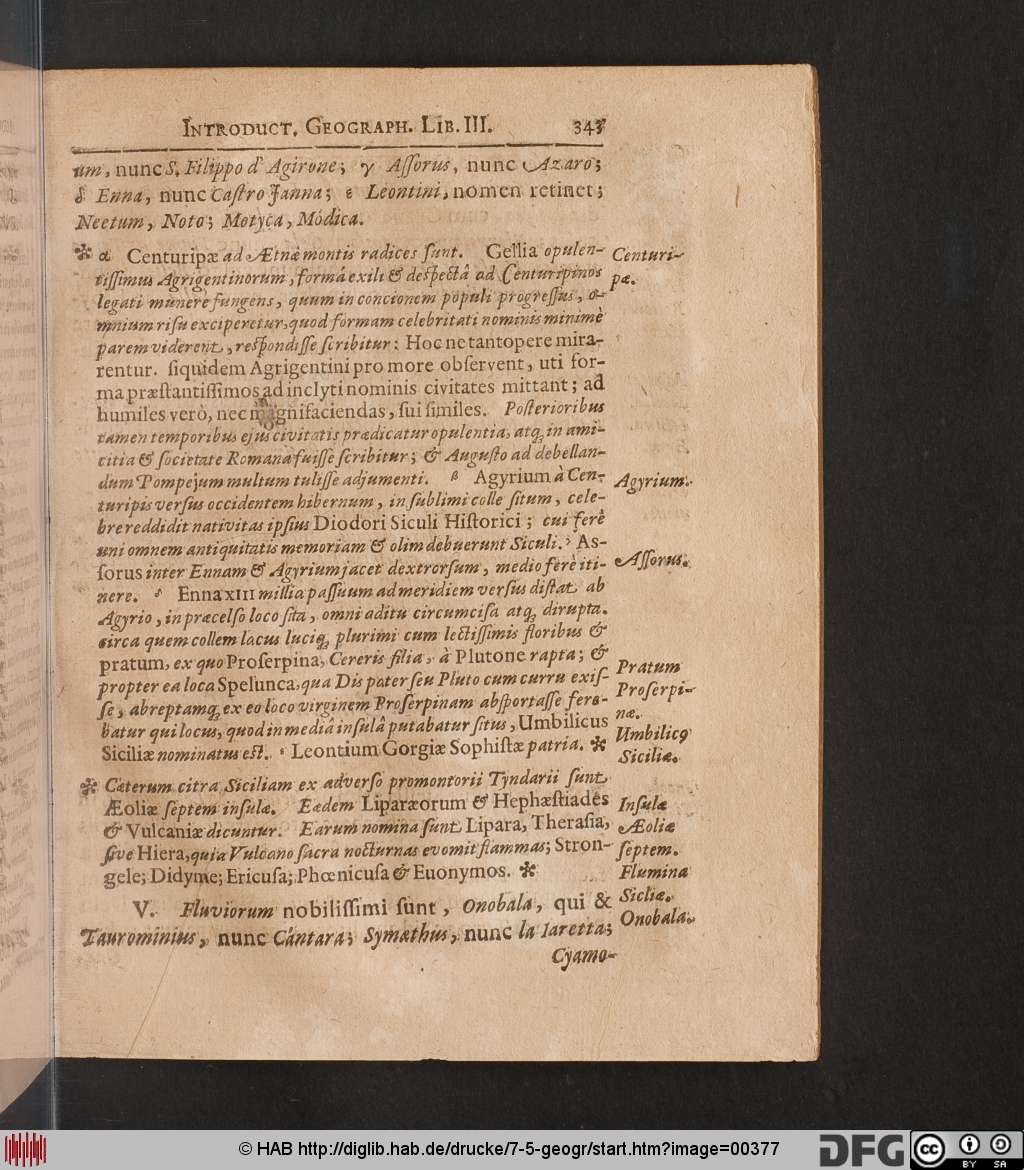 INTRODUCT. GEOGRAPH. LIB. III. 343
um, nunc S. Filippo d' Agirone; γ Aſſorus, nunc Azaro;
δ Enna, nunc Caſtro Janna; ε Leontini, nomen retinet;
Neetum, Noto; Motyca, Módica.
✻ α Centuripæ ad Ætnæ montis radices ſunt. Gellia opulen-
tiſſimus Agrigentinorum, formá exili & deſpectâ ad Centuripinos
legati munere fungens, quum in concionem populi progreſſus, o-
mnium riſu exciperetur, quod formam celebritati nominis minimè
parem viderent, reſpondiſſe ſcribitur: Hoc ne tantopere mira-
rentur. ſiquidem Agrigentini pro more obſervent, uti for-
ma præſtantiſſimos ad inclyti nominis civitates mittant; ad
humiles verò, nec magnifaciendas, ſui ſimiles. Poſterioribus
tamen temporibus ejus civitatis prædicatur opulentia, atq; in ami-
citia & ſocietate Romana fuiſſe ſcribitur; & Auguſto ad debellan-
dum Pompejum multum tuliſſe adjumenti. β Agyrium à Cen-
turipis verſus occidentem hibernum, in ſublimi colle ſitum, cele-
bre reddidit nativitas ipſius Diodori Siculi Hiſtorici; cui ferè
uni omnem antiquitatis memoriam & olim debuerunt Siculi. γ Aſ-
ſorus inter Ennam & Agyrium jacet dextrorſum, medio ferè iti-
nere. δ Enna XIII millia paſſuum ad meridiem verſus diſtat ab
Agyrio, in præcelſo loco ſita, omni aditu circumciſa atq; dirupta.
circa quem collem lacus luciq; plurimi cum lectiſſimis floribus &
pratum, ex quo Proſerpina, Cereris filia, à Plutone rapta; &
propter ea loca Spelunca, qua Dis pater ſeu Pluto cum curru exiſ-
ſe, abreptamq; ex eo loco virginem Proſerpinam abſportaſſe fere-
batur qui locus, quod in mediâ inſulâ putabatur ſitus, Umbilicus
Siciliæ nominatus eſt. ε Leontium Gorgiæ Sophiſtæ patria. ✻
✻ Cæterum citra Siciliam ex adverſo promontorii Tyndarii ſunt
Æoliæ ſeptem inſulæ. Eædem Liparæorum & Hephæſtiadès
& Vulcaniæ dicuntur. Earum nomina ſunt Lipara, Theraſia,
ſive Hiera, quia Vulcano ſacra nocturnas evomit flammas; Stron-
gele; Didyme; Ericuſa; Phœnicuſa & Euonymos. ✻
V. Fluviorum nobiliſſimi ſunt, Onobala, qui &
Taurominius, nunc Cántara; Symæthus, nunc la Iaretta;
Cyamo-
Centuri-
pæ.
Agyrium.
Aſſorus.
Pratum
Proſerpi-
næ.
Umbilicꝰ
Siciliæ.
Inſulæ
Æoliæ
ſeptem.
Flumina
Siciliæ.
Onobala.
© HAB http://diglib.hab.de/drucke/7-5-geogr/start.htm?image=00377
DFG
CC BY SA